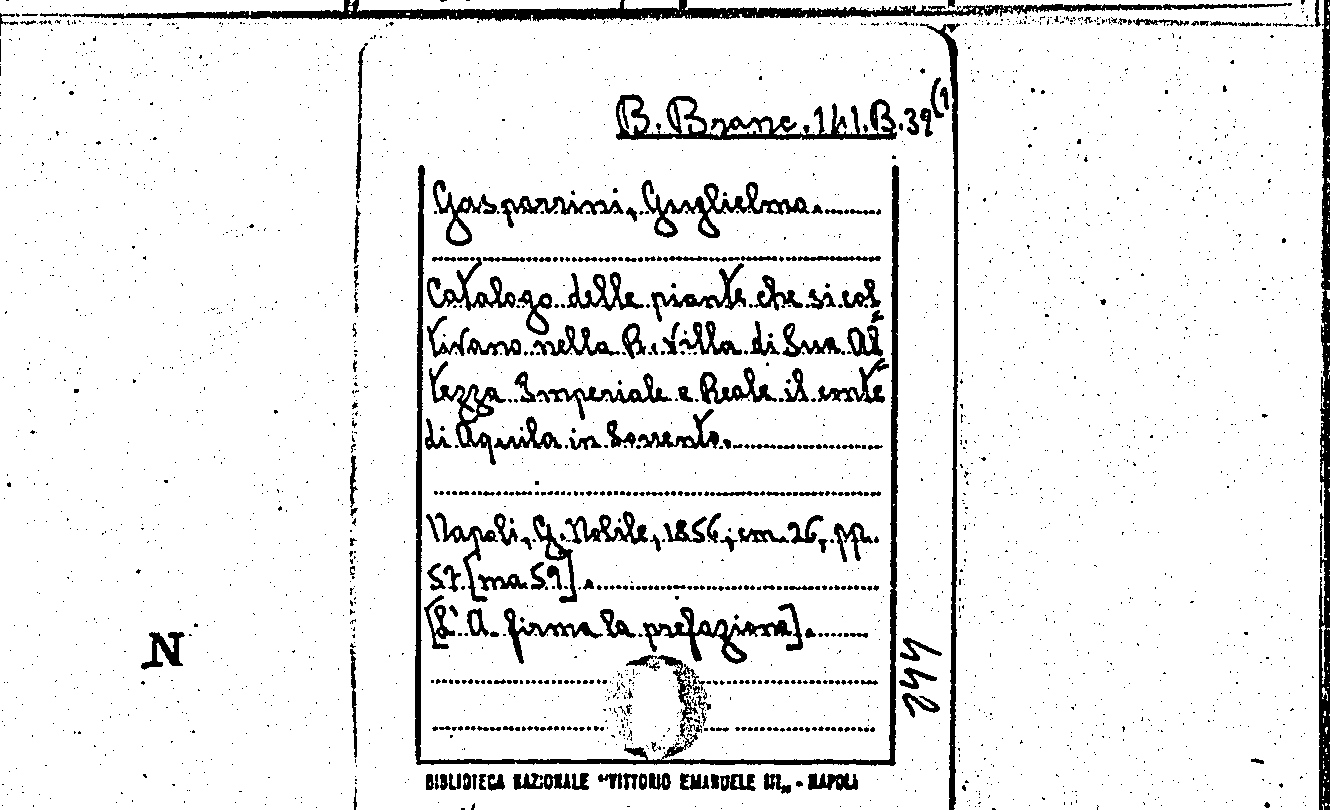 B. Branc. 141. B. 39(1
Gasparrini, Guglielmo.
Catalogo delle piante che si col=
tivano nella R. villa di Sua Al=
tezza Imperiale e Reale il conte
di Aquila in Sorrento.
Napoli, G. Nobile, 1856, cm. 26, pp.
57 [ma 59].
[L'A. firma la prefazione].
N
244
BIBLIOTECA NAZIONALE "VITTORIO EMANUELE III„ - NAPOLI